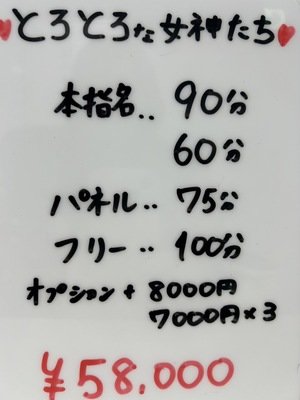 とろとろな女神たち
本指名.. 90分
60分
パネル.. 75分
フリー.. 100分
オプション + 8000円
7000円×3
¥58.000